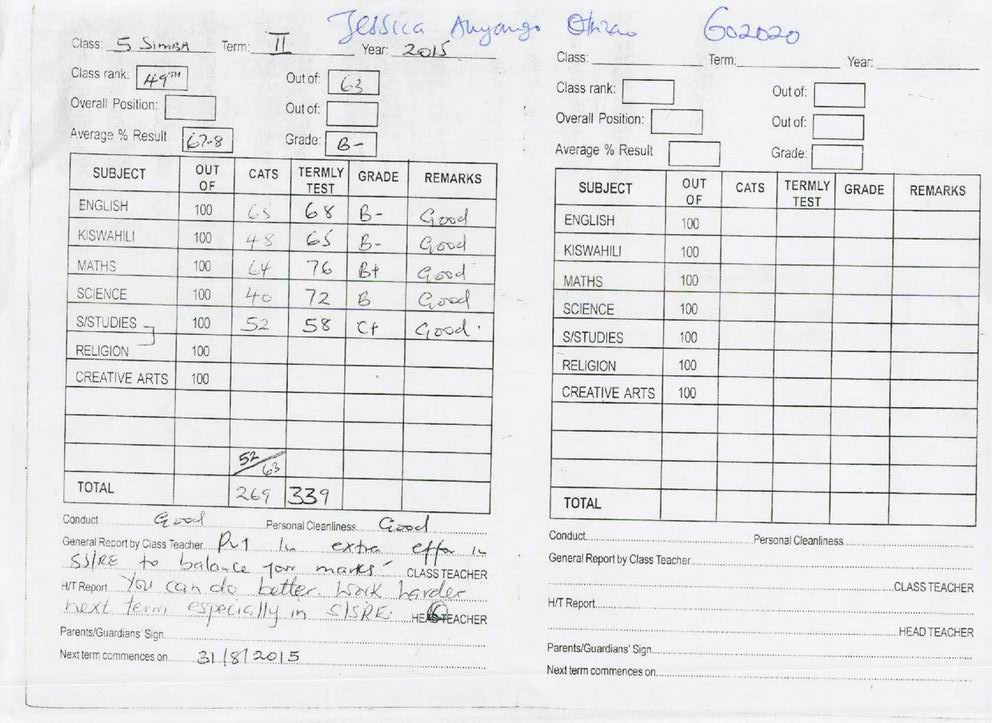 Jessica Anyango G02020
Class: 5 SIMBA Term: II Year: 2015
Class rank: 49TH Out of: 63
Overall Position: Out of:
Average % Result 67.8 Grade: B-
SUBJECT OUT OF CATS TERMLY TEST GRADE REMARKS
ENGLISH 100 65 68 B- Good
KISWAHILI 100 48 65 B- Good
MATHS 100 64 76 B+ Good
SCIENCE 100 40 72 B Good
S/STUDIES 100 52 58 C+ Good.
RELIGION 100
CREATIVE ARTS 100
52/63
TOTAL 269 339
Conduct Good Personal Cleanliness Good
General Report by Class Teacher Put in extra effor in
SS/RE to balance your marks CLASS TEACHER
H/T Report You can do better. Work harder
next term especially in S/SRE. HEAD TEACHER
Parents/Guardians' Sign
Next term commences on 31/8/2015
Class: Term: Year:
Class rank: Out of:
Overall Position: Out of:
Average % Result Grade:
SUBJECT OUT OF CATS TERMLY TEST GRADE REMARKS
ENGLISH 100
KISWAHILI 100
MATHS 100
SCIENCE 100
S/STUDIES 100
RELIGION 100
CREATIVE ARTS 100
TOTAL
Conduct Personal Cleanliness
General Report by Class Teacher
CLASS TEACHER
H/T Report
HEAD TEACHER
Parents/Guardians' Sign
Next term commences on